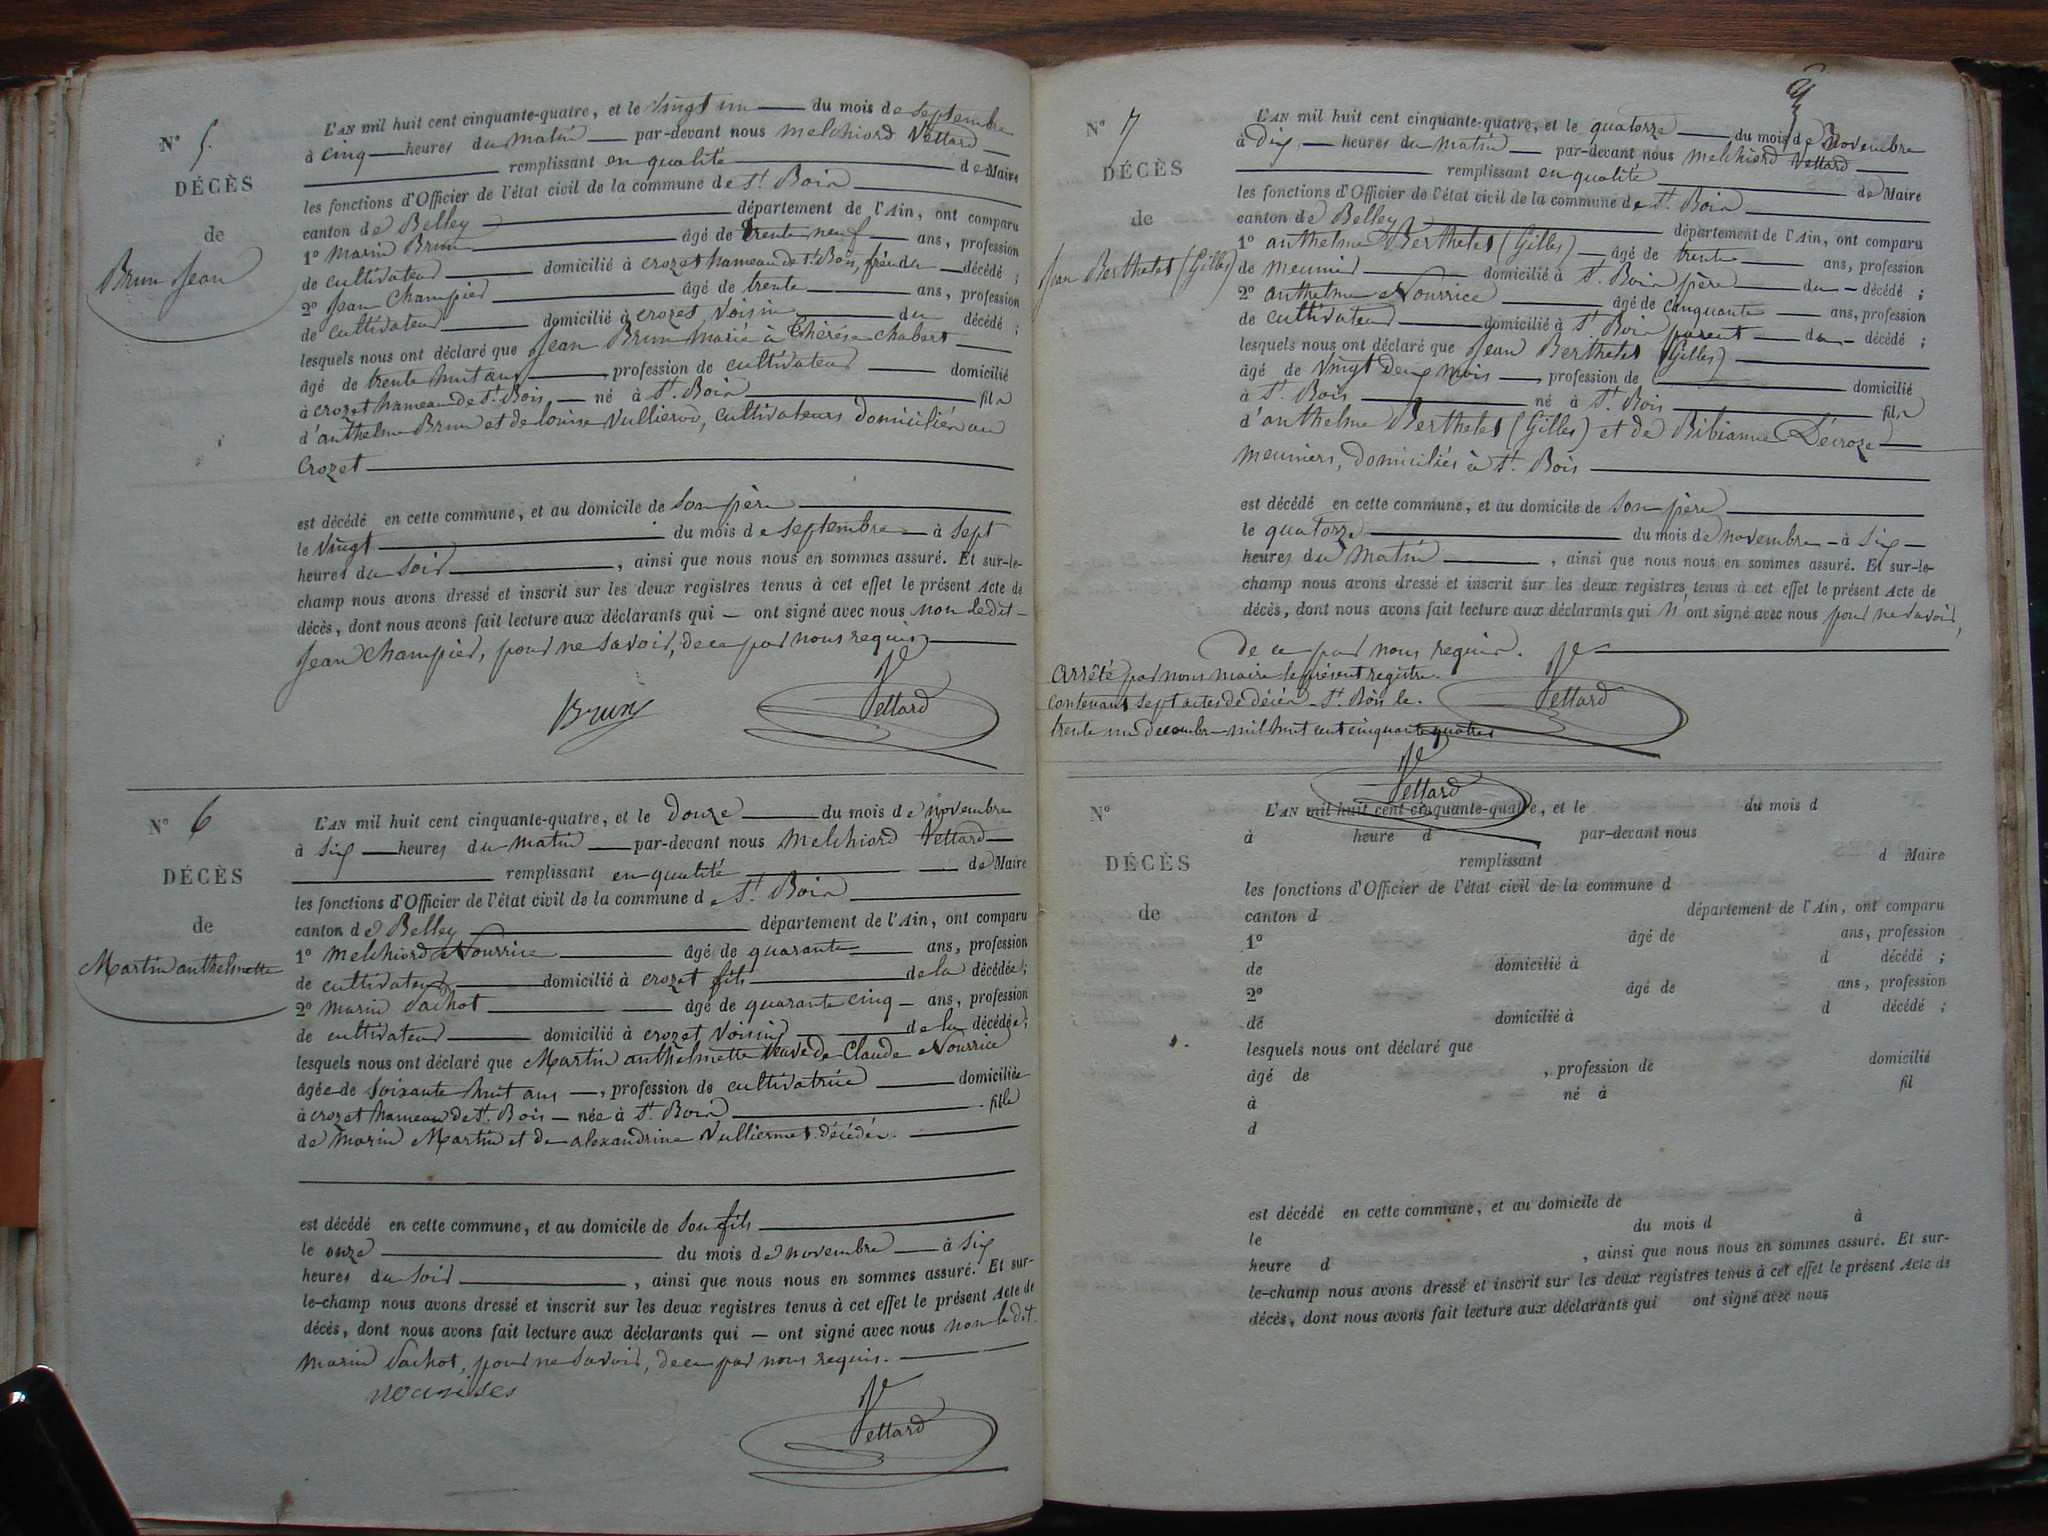 N° 5.
DÉCÈS
de
Brun Jean
L'AN mil huit cent cinquante-quatre, et le vingt un du mois de septembre
à cinq heures du matin par-devant nous melchiord Vettard
remplissant en qualité de Maire
les fonctions d'Officier de l'état civil de la commune de St. Bois
canton de Belley département de l'Ain, ont comparu
1° marin Brun âgé de trente neuf ans, profession
de cultivateur domicilié à crozet hameau de St. Bois, frère du décédé ;
2° Jean Champier âgé de trente ans, profession
de cultivateur domicilié à crozet, voisin du décédé ;
lesquels nous ont déclaré que Jean Brun marié à Thérèse Chabert
âgé de trente huit ans, profession de cultivateur domicilié
à crozet hameau de St. Bois né à St. Bois fils
d'anthelme Brun et de Louise Vullierod, cultivateurs domiciliés au
Crozet
est décédé en cette commune, et au domicile de son père
le vingt du mois de septembre à sept
heures du soir, ainsi que nous nous en sommes assuré. Et sur-le-
champ nous avons dressé et inscrit sur les deux registres tenus à cet effet le présent Acte de
décès, dont nous avons fait lecture aux déclarants qui — ont signé avec nous non ledit
Jean Champier, pour ne savoir, de ce par nous requis
Brun Vettard
N° 6
DÉCÈS
de
Martin anthelmette
L'AN mil huit cent cinquante-quatre, et le douze du mois de novembre
à six heures du matin par-devant nous Melchiord Vettard
remplissant en qualité de Maire
les fonctions d'Officier de l'état civil de la commune de St. Bois
canton de Belley département de l'Ain, ont comparu
1° melchiord Nourrice âgé de quarante ans, profession
de cultivateur domicilié à crozet fils de la décédée ;
2° marin Sachot âgé de quarante cinq ans, profession
de cultivateur domicilié à crozet voisin de la décédée ;
lesquels nous ont déclaré que Martin anthelmette veuve de Claude Nourrice
âgée de soixante huit ans, profession de cultivatrice domiciliée
à crozet hameau de St. Bois née à St. Bois fille
de marin Martin et de alexandrine Vulliermet décédés.
est décédé en cette commune, et au domicile de son fils
le onze du mois de novembre à six
heures du soir, ainsi que nous nous en sommes assuré. Et sur-
le-champ nous avons dressé et inscrit sur les deux registres tenus à cet effet le présent Acte de
décès, dont nous avons fait lecture aux déclarants qui — ont signé avec nous non le dit
marin Sachot, pour ne savoir, de ce par nous requis.
Vettard
N° 7
DÉCÈS
de
Jean Berthelet (Gilles)
L'AN mil huit cent cinquante-quatre, et le quatorze du mois de Novembre
à dix heures du matin par-devant nous melchiord Vettard
remplissant en qualité de Maire
les fonctions d'Officier de l'état civil de la commune de St. Bois
canton de Belley département de l'Ain, ont comparu
1° anthelme Berthelet (Gilles) âgé de trente ans, profession
de meunier domicilié à St. Bois père du décédé ;
2° anthelme Nourrice âgé de cinquante ans, profession
de cultivateur domicilié à St. Bois parent du décédé ;
lesquels nous ont déclaré que Jean Berthelet (Gilles)
âgé de vingt deux mois, profession de domicilié
à St. Bois né à St. Bois fils
d'anthelme Berthelet (Gilles) et de Bibianne Décroze
meuniers, domiciliés à St. Bois
est décédé en cette commune, et au domicile de son père
le quatorze du mois de novembre à six
heures du matin, ainsi que nous nous en sommes assuré. Et sur-le-
champ nous avons dressé et inscrit sur les deux registres tenus à cet effet le présent Acte de
décès, dont nous avons fait lecture aux déclarants qui n'ont signé avec nous pour ne savoir,
de ce par nous requis.
Vettard
arrêté par nous maire le présent registre
contenant sept actes de décés St. Bois le
trente un decembre mil huit cent cinquante quatre
Vettard
N°
DÉCÈS
de
L'AN mil huit cent cinquante-quatre, et le du mois d
à heure d par-devant nous
remplissant d Maire
les fonctions d'Officier de l'état civil de la commune d
canton d département de l'Ain, ont comparu
1° âgé de ans, profession
de domicilié à d décédé ;
2° âgé de ans, profession
de domicilié à d décédé ;
lesquels nous ont déclaré que
âgé de , profession de domicilié
à né à fil
d
est décédé en cette commune, et au domicile de
le du mois d à
heure d , ainsi que nous nous en sommes assuré. Et sur-
le-champ nous avons dressé et inscrit sur les deux registres tenus à cet effet le présent Acte de
décès, dont nous avons fait lecture aux déclarants qui ont signé avec nous